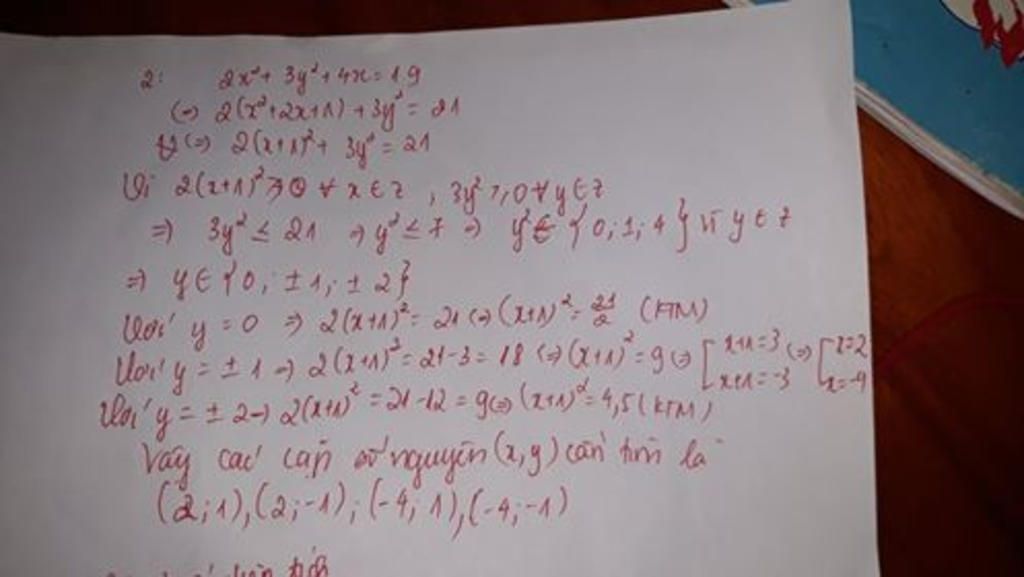 2: 2x² + 3y² + 4x = 19
(=) 2(x²+2x+1) + 3y² = 21
(=) 2(x+1)² + 3y² = 21
Vì 2(x+1)² ≥ 0 ∀ x ∈ Z , 3y² ≥ 0 ∀ y ∈ Z
=) 3y² ≤ 21 =) y² ≤ 7 =) y² ∈ { 0; 1; 4 } vì y ∈ Z
=) y ∈ { 0; ±1; ±2 }
Với y = 0 =) 2(x+1)² = 21 (=) (x+1)² = 21/2 (KTM)
Với y = ±1 =) 2(x+1)² = 21-3 = 18 (=) (x+1)² = 9 (=) [ x+1=3 x+1=-3 (=) [ x=2 x=-4
Với y = ±2 =) 2(x+1)² = 21-12 = 9 (=) (x+1)² = 4,5 (KTM)
Vậy các cặp số nguyên (x,y) cần tìm là
(2;1),(2;-1);(-4;1),(-4;-1)